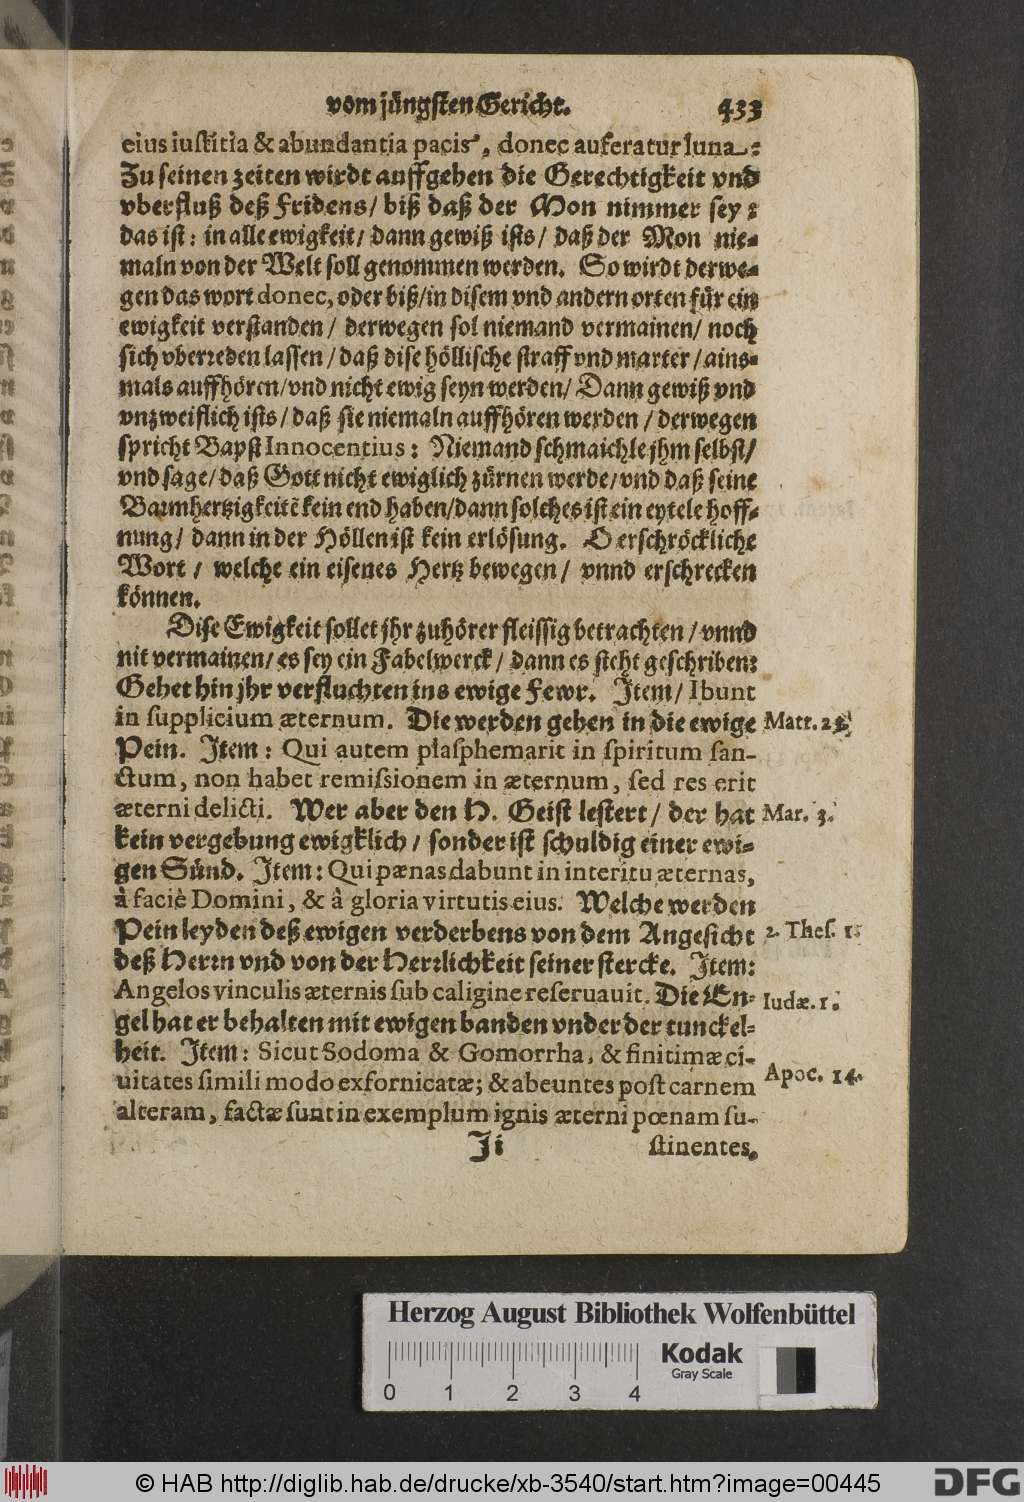 vom jüngsten Gericht. 433
eius iustitia & abundantia pacis, donec auferatur luna:
Zu seinen zeiten wirdt auffgehen die Gerechtigkeit vnd
vberfluß deß Fridens/ biß daß der Mon nimmer sey:
das ist: in alle ewigkeit/ dann gewiß ists/ daß der Mon nie-
maln von der Welt soll genommen werden. So wirdt derwe-
gen das wort donec, oder biß/in disem vnd andern orten für ein
ewigkeit verstanden/ derwegen sol niemand vermainen/ noch
sich vberreden lassen/ daß dise höllische straff vnd marter/ ains-
mals auffhören/vnd nicht ewig seyn werden/ Dann gewiß vnd
vnzweiflich ists/ daß sie niemaln auffhören werden/ derwegen
spricht Bapst Innocentius: Niemand schmaichle jhm selbst/
vnd sage/ daß Gott nicht ewiglich zürnen werde/ vnd daß seine
Barmhertzigkeitē kein end haben/dann solches ist ein eytele hoff-
nung/ dann in der Höllen ist kein erlösung. O erschröckliche
Wort/ welche ein eisenes Hertz bewegen/ vnnd erschrecken
können.
Dise Ewigkeit sollet jhr zuhörer fleissig betrachten/ vnnd
nit vermainen/ es sey ein Fabelwerck/ dann es steht geschriben:
Gehet hin jhr verfluchten ins ewige Fewr. Item/ Ibunt
in supplicium æternum. Die werden gehen in die ewige Matt. 25.
Pein. Item: Qui autem plasphemarit in spiritum san-
ctum, non habet remissionem in æternum, sed res erit
æterni delicti. Wer aber den H. Geist lestert/ der hat Mar. 3.
kein vergebung ewigklich/ sonder ist schuldig einer ewi-
gen Sünd. Item: Qui pænas dabunt in interitu æternas,
à faciè Domini, & â gloria virtutis eius. Welche werden
Pein leyden deß ewigen verderbens von dem Angesicht 2. Thes. 1.
deß Herrn vnd von der Herrlichkeit seiner stercke. Item:
Angelos vinculis æternis sub caligine reseruauit. Die En- Iudæ. 1.
gel hat er behalten mit ewigen banden vnder der tunckel-
heit. Item: Sicut Sodoma & Gomorrha, & finitimæ ci-
uitates simili modo exfornicatæ; & abeuntes post carnem Apoc. 14.
alteram, factæ sunt in exemplum ignis æterni pœnam su-
Ji stinentes.
Herzog August Bibliothek Wolfenbüttel
Kodak
Gray Scale
0 1 2 3 4
© HAB http://diglib.hab.de/drucke/xb-3540/start.htm?image=00445 DFG